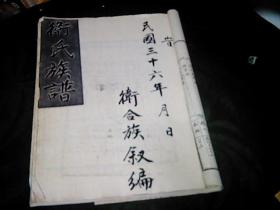 民國三十六年　月　日
衛合族叙編
衛氏族譜